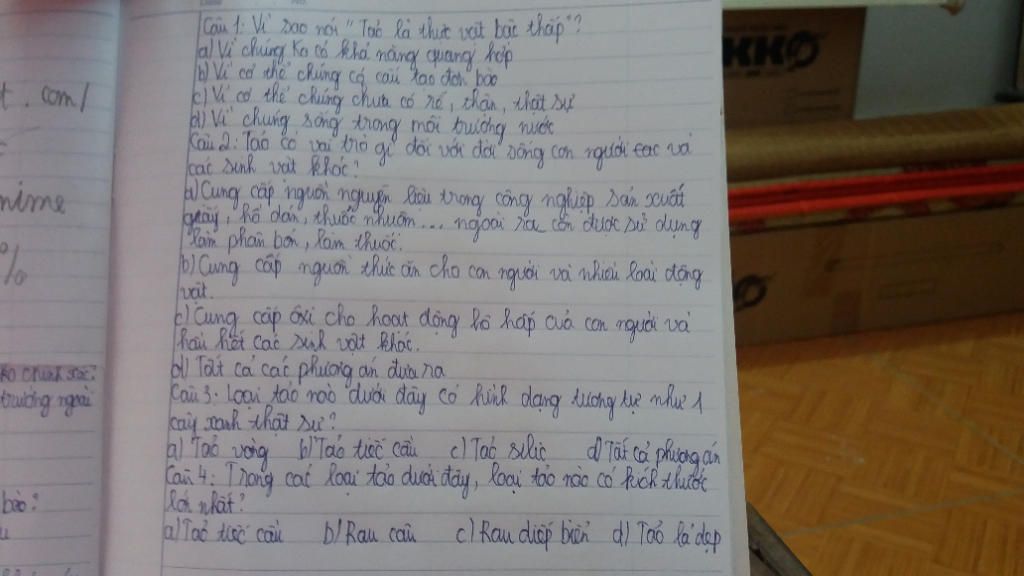 Câu 1: Vì sao nói "Tảo là thực vật bậc thấp"?
a) Vì chúng ko có khả năng quang hợp
b) Vì cơ thể chúng có cấu tạo đơn bào
c) Vì cơ thể chúng chưa có rễ, thân, thật sự
d) Vì chúng sống trong môi trường nước
Câu 2: Tảo có vai trò gì đối với đời sống con người và
các sinh vật khác?
a) Cung cấp nguồn nguyên liệu trong công nghiệp sản xuất
giấy, hồ dán, thuốc nhuộm... ngoài ra còn được sử dụng
làm phân bón, làm thuốc.
b) Cung cấp nguồn thức ăn cho con người và nhiều loài động
vật.
c) Cung cấp ôxi cho hoạt động hô hấp của con người và
hầu hết các sinh vật khác.
d) Tất cả các phương án đưa ra
Câu 3. Loại tảo nào dưới đây có hình dạng tương tự như 1
cây xanh thật sự?
a) Tảo vòng b) Tảo tiểc cầu c) Tảo silic d) Tất cả phương án
Câu 4: Trong các loại tảo dưới đây, loại tảo nào có kích thước
lớn nhất?
a) Tảo tiểc cầu b) Rau câu c) Rau diếp biển d) Tảo lá dẹp
t.com/
nime
%
ko chính xác?
trường ngoài
bào?
KKO